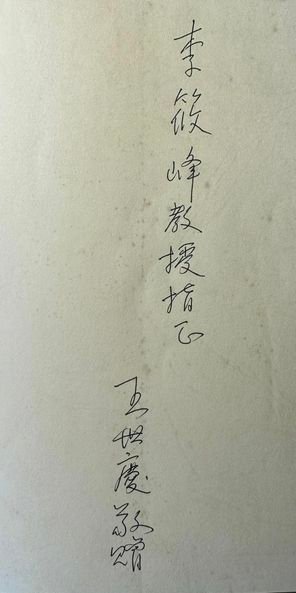 李筱峰教授指正
王世慶敬贈